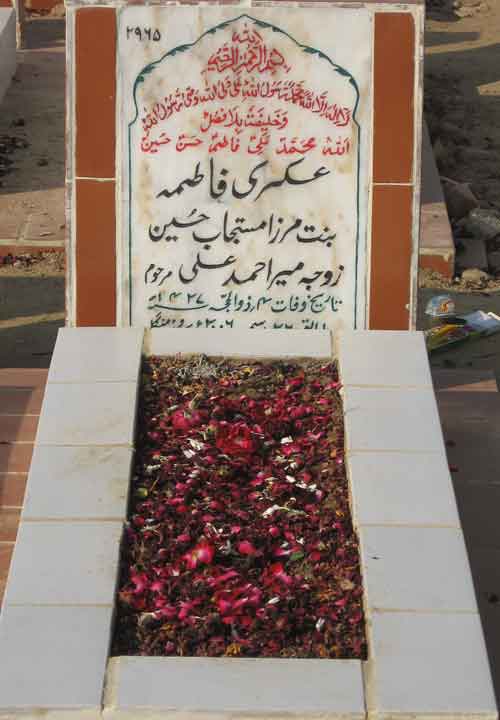 ۲۹۶۵
بسم اللہ الرحمن الرحیم
لا الہ الا اللہ محمد رسول اللہ علی ولی اللہ وصی رسول اللہ
وخلیفتہ بلا فصل
اللہ محمد علی فاطمہ حسن حسین
عسکری فاطمہ
بنت مرزا مستجاب حسین
زوجہ میر احمد علی مرحوم
تاریخ وفات ۴ ذوالحجہ ۱۴۲۷ھ